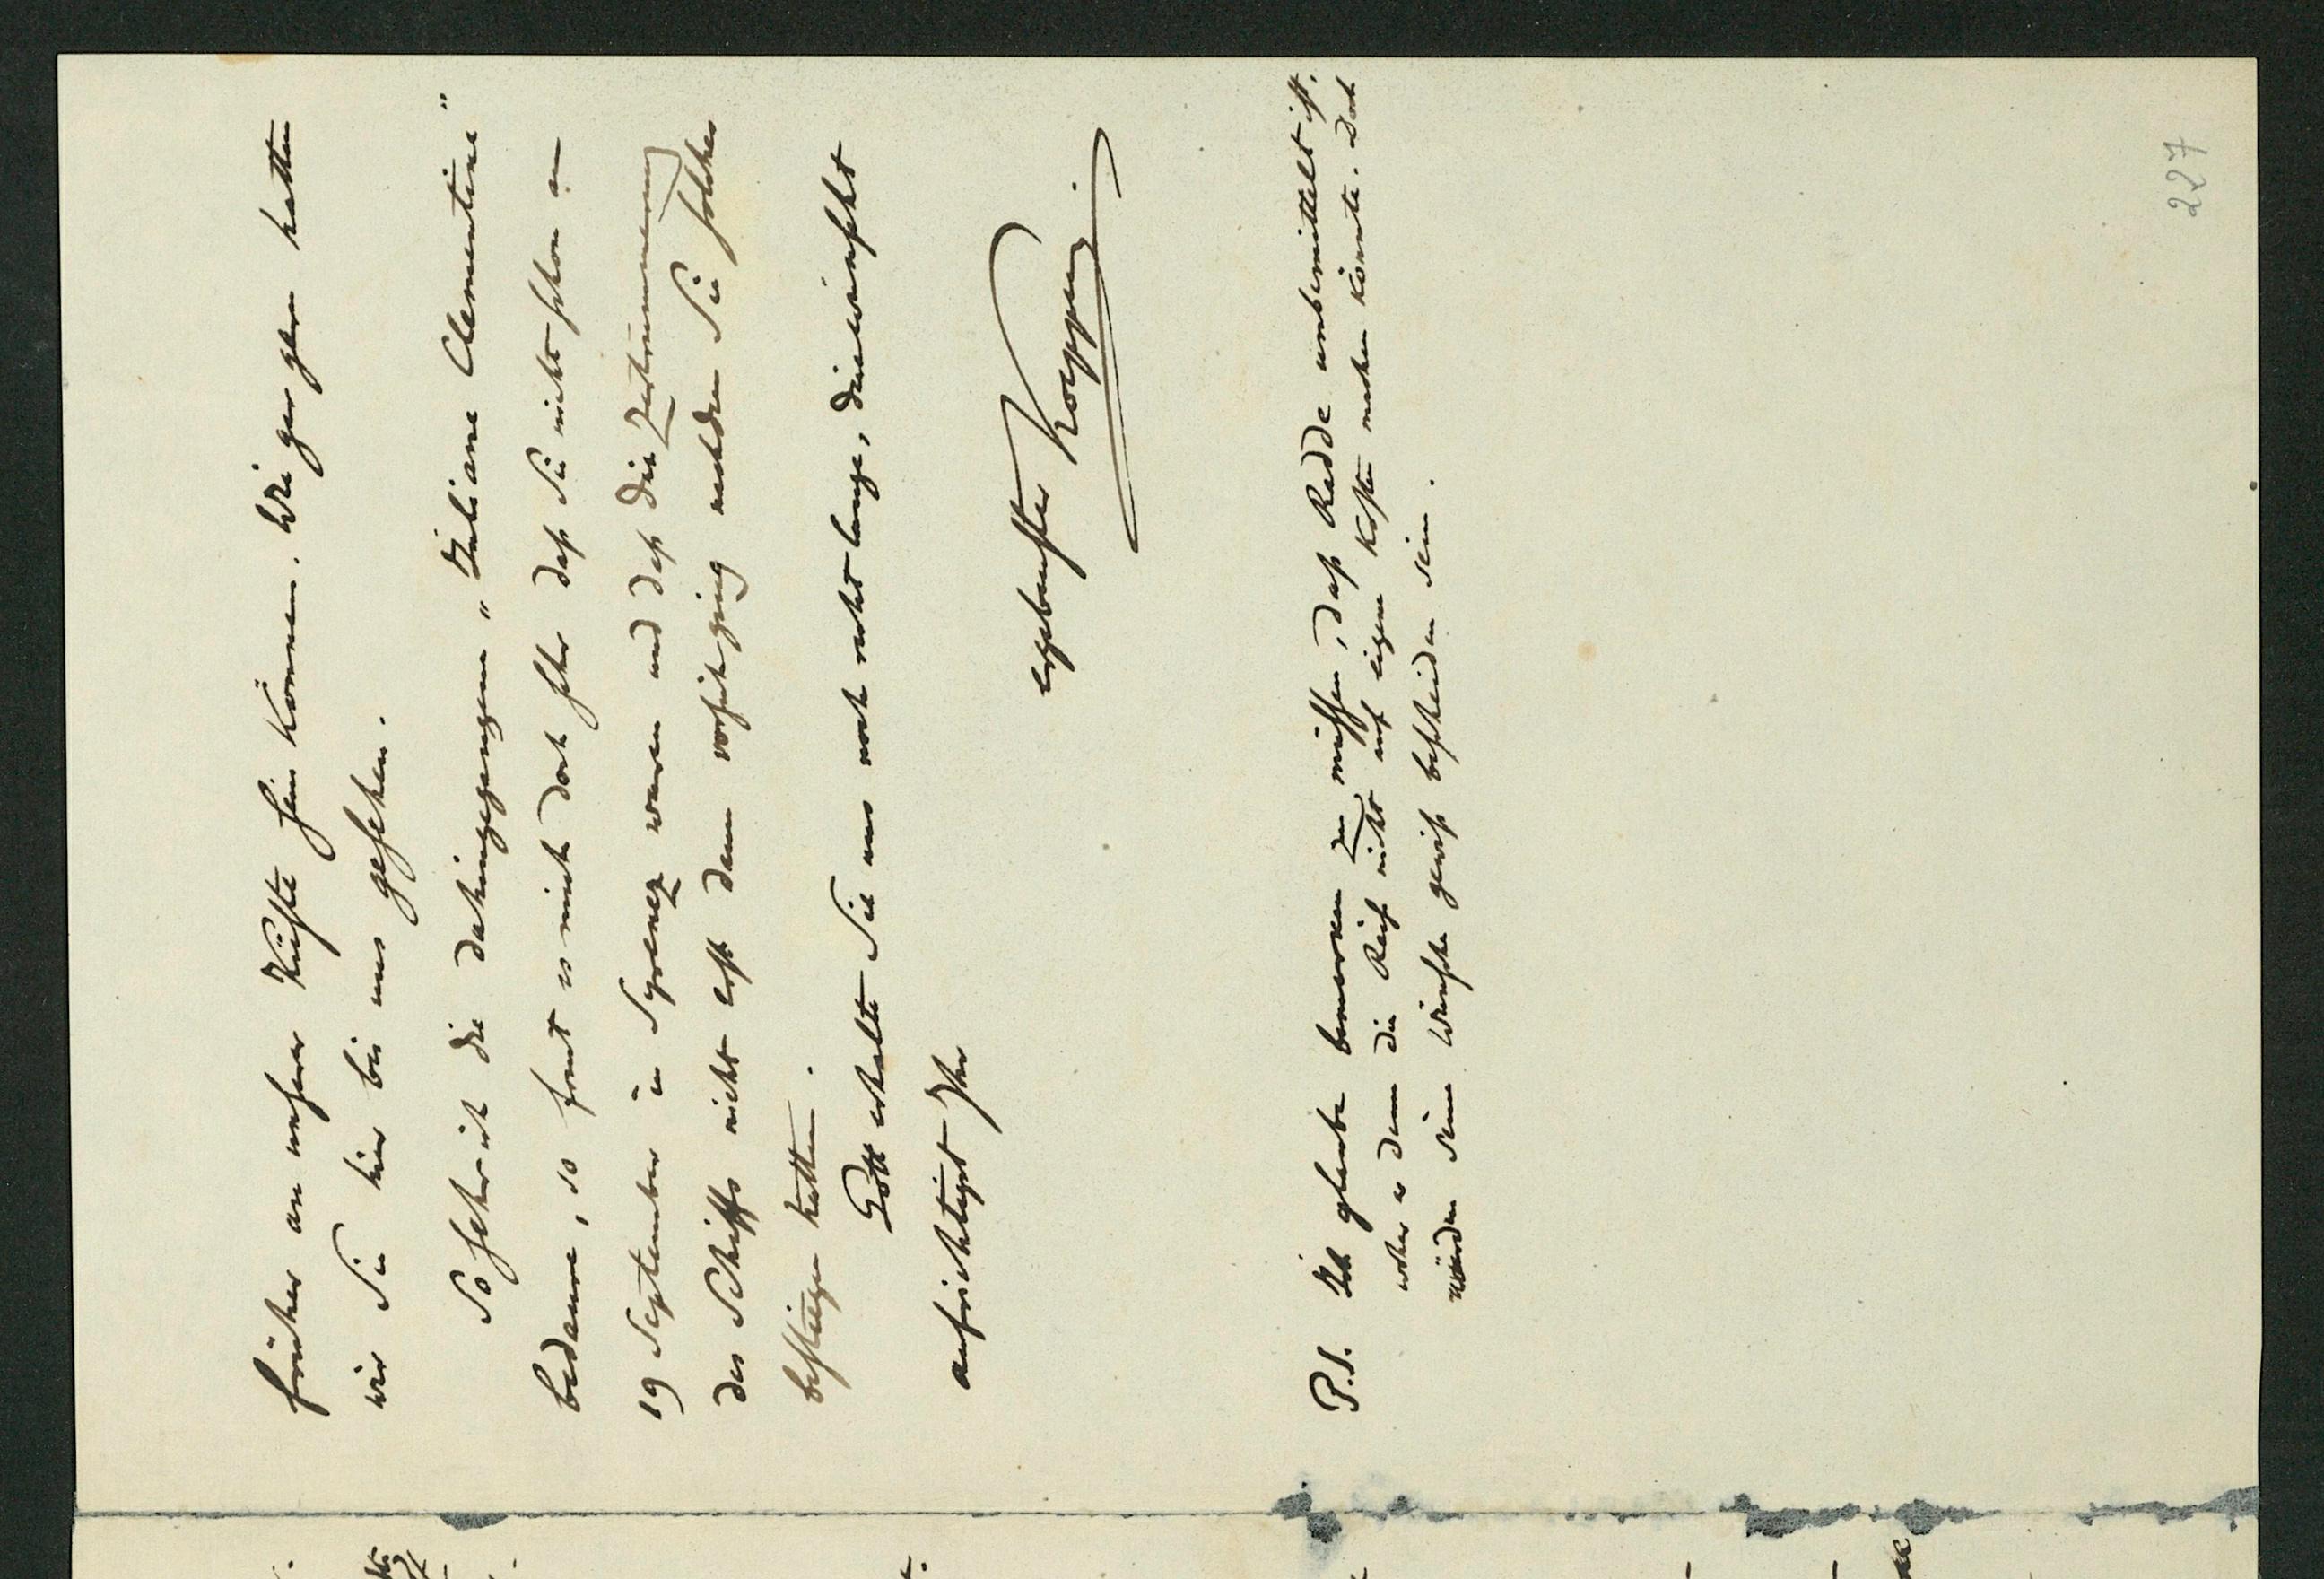 früher an unserer Küste sein können. Wie gar gern hätten
wir Sie hier bei uns gesehen.
So sehr ich die dahingegangene „Juliane Clementine"
bedaure, so freut es mich doch sehr daß Sie nicht schon am
19 September in waren und daß die Zertrümmerung
des Schiffs nicht erst dann vor sich ging nachdem Sie solches
bestiegen hatten.
Gott erhalte Sie uns noch recht lange, dies wünscht
aufrichtigst Ihr
ergebenster Koeppen.
P.S. Ich glaube bemerken zu müssen, daß Radde unbemittelt ist,
woher er denn die Reise nicht auf eigene Kosten machen könnte. Doch
würden seine Wünsche gewiß bescheiden sein.
227